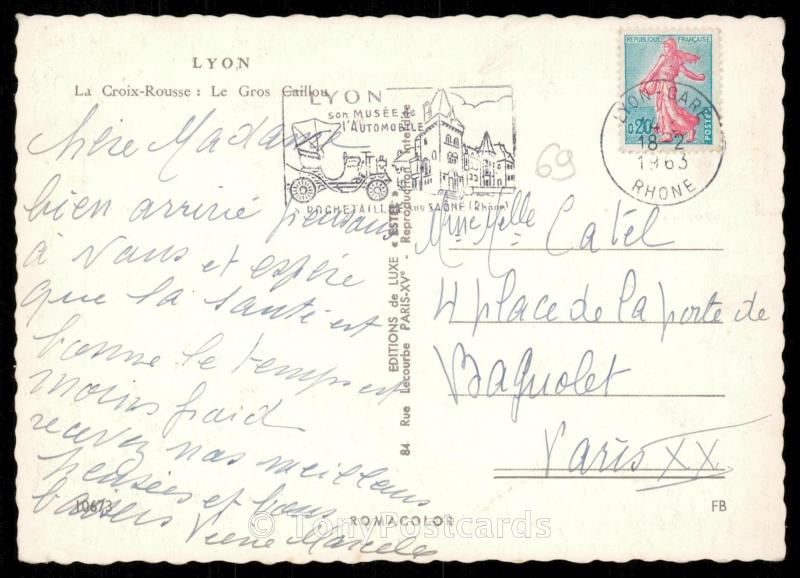 LYON
La Croix-Rousse : Le Gros Caillou
Chère Madame
bien arrivé pensons
à Vous et espère
que la santé est
bonne le temps est
moins froid
recevez nos meilleurs
pensées et bons
baisers Pierre Marcelle
10673
EDITIONS de LUXE « ESTEL »
84 Rue Lecourbe PARIS-XVe - Reproduction Interdite
LYON
son MUSÉE de
l'AUTOMOBILE
ROCHETAILLÉE SAÔNE (Rhône)
REPUBLIQUE FRANÇAISE
0,20
POSTES
LYON-GARE
18-2
1963
RHONE
69
Mme Melle Catel
4 place de la porte de
Bagnolet
Paris XX
ROMACOLOR
FB
© TonyPostcards